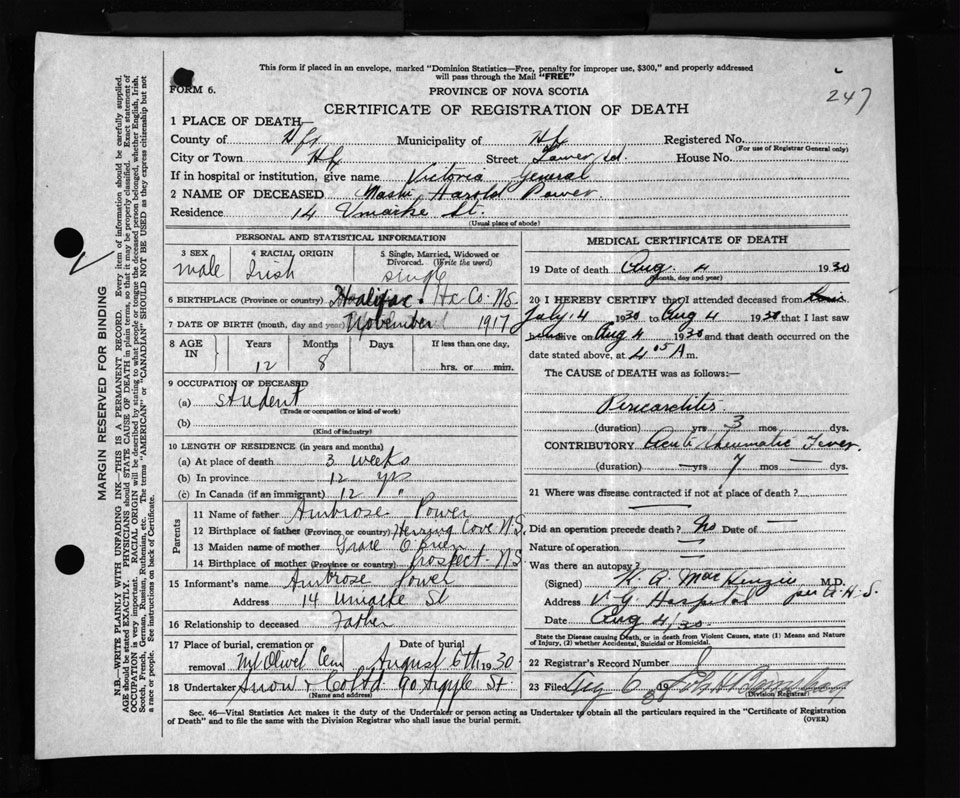 This form if placed in an envelope, marked "Dominion Statistics—Free, penalty for improper use, $300," and properly addressed
will pass through the Mail "FREE"
FORM 6.
PROVINCE OF NOVA SCOTIA
247
CERTIFICATE OF REGISTRATION OF DEATH
1 PLACE OF DEATH—
County of Hfx Municipality of Hx Registered No.
(For use of Registrar General only)
City or Town Hx Street Tower Rd. House No.
If in hospital or institution, give name Victoria General
2 NAME OF DECEASED Harold Power
Residence 14 St.
(Usual place of abode)
PERSONAL AND STATISTICAL INFORMATION
3 SEX 4 RACIAL ORIGIN 5 Single, Married, Widowed or Divorced. (Write the word)
male Irish single
6 BIRTHPLACE (Province or country) Halifax. Hx Co. N.S.
7 DATE OF BIRTH (month, day and year) November 1917
8 AGE IN Years Months Days If less than one day,
12 8 hrs. or min.
9 OCCUPATION OF DECEASED
(a) Student
(Trade or occupation or kind of work)
(b)
(Kind of industry)
10 LENGTH OF RESIDENCE (in years and months)
(a) At place of death 3 weeks
(b) In province 12 yrs
(c) In Canada (if an immigrant) 12 "
Parents
11 Name of father Ambrose Power
12 Birthplace of father (Province or country) Herring Cove N.S.
13 Maiden name of mother Grace O'Brien
14 Birthplace of mother (Province or country) Prospect N.S
15 Informant's name Ambrose Power
Address 14 Uniacke St
16 Relationship to deceased Father
17 Place of burial, cremation or removal Date of burial
Mt Olivet Cem August 6th 1930
18 Undertaker Snow & Co Ltd 90 Argyle St.
(Name and address)
MEDICAL CERTIFICATE OF DEATH
19 Date of death Aug. 4 1930
(Month, day and year)
20 I HEREBY CERTIFY that I attended deceased from
July 4 1930 to Aug 4 1930 that I last saw
alive on Aug 4 1930 and that death occurred on the
date stated above, at 4 05 A m.
The CAUSE of DEATH was as follows:—
Pericarditis
(duration) yrs 3 mos. dys.
CONTRIBUTORY Acute rheumatic Fever.
(duration) — yrs 7 mos — dys.
21 Where was disease contracted if not at place of death?
Did an operation precede death? No Date of —
Nature of operation —
Was there an autopsy? —
(Signed) K. A. MacKenzie M.D.
per A.H.S.
Address V. G. Hospital
Date Aug 4, 30
State the Disease causing Death, or in death from Violent Causes, state (1) Means and Nature
of Injury, (2) whether Accidental, Suicidal or Homicidal.
22 Registrar's Record Number
23 Filed Aug 6 1930
(Division Registrar)
Sec. 46—Vital Statistics Act makes it the duty of the Undertaker or person acting as Undertaker to obtain all the particulars required in the "Certificate of Registration
of Death" and to file the same with the Division Registrar who shall issue the burial permit.
(OVER)
MARGIN RESERVED FOR BINDING
N.B.—WRITE PLAINLY WITH UNFADING INK—THIS IS A PERMANENT RECORD. Every item of information should be carefully supplied.
AGE should be stated EXACTLY. PHYSICIANS should STATE CAUSE OF DEATH in plain terms, so that it may be properly classified. Exact statement of
OCCUPATION is very important. RACIAL ORIGIN will be described by stating to what people or tongue the deceased person belonged, whether English, Irish,
Scotch, French, German, Russian, Ruthenian, etc. The terms "AMERICAN" or "CANADIAN" SHOULD NOT BE USED as they express citizenship but not
a race or people. See instructions on back of Certificate.